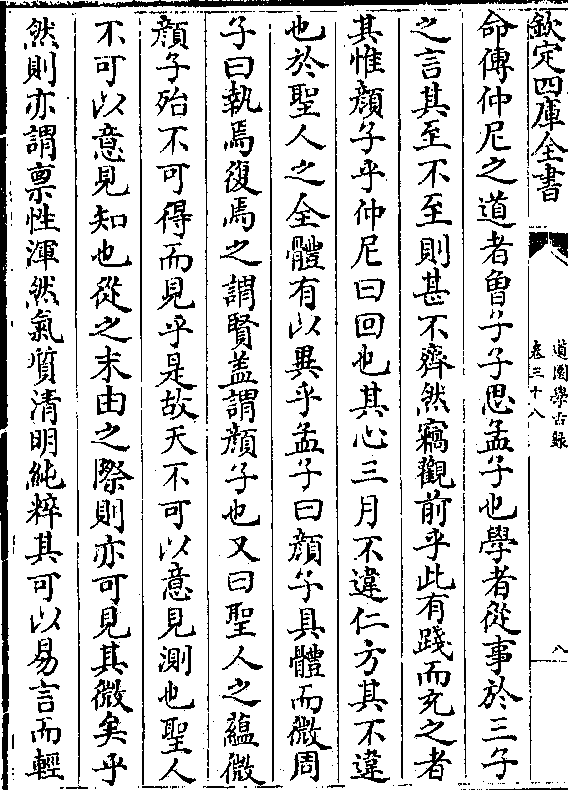 欽定四庫全書
道園學古録
卷三十八
八
命傳仲尼之道者魯子子思孟子也學者從事於三子
之言其至不至則甚不齊然竊觀前乎此有踐而充之者
其惟顔子乎仲尼曰回也其心三月不違仁方其不違
也於聖人之全體有以異乎孟子曰顔子具體而微周
子曰執焉復焉之謂賢盖謂顔子也又曰聖人之蘊微
顔子殆不可得而見乎是故天不可以意見測也聖人
不可以意見知也從之末由之際則亦可見其微矣乎
然則亦謂禀性渾然氣質清明純粹其可以易言而輕